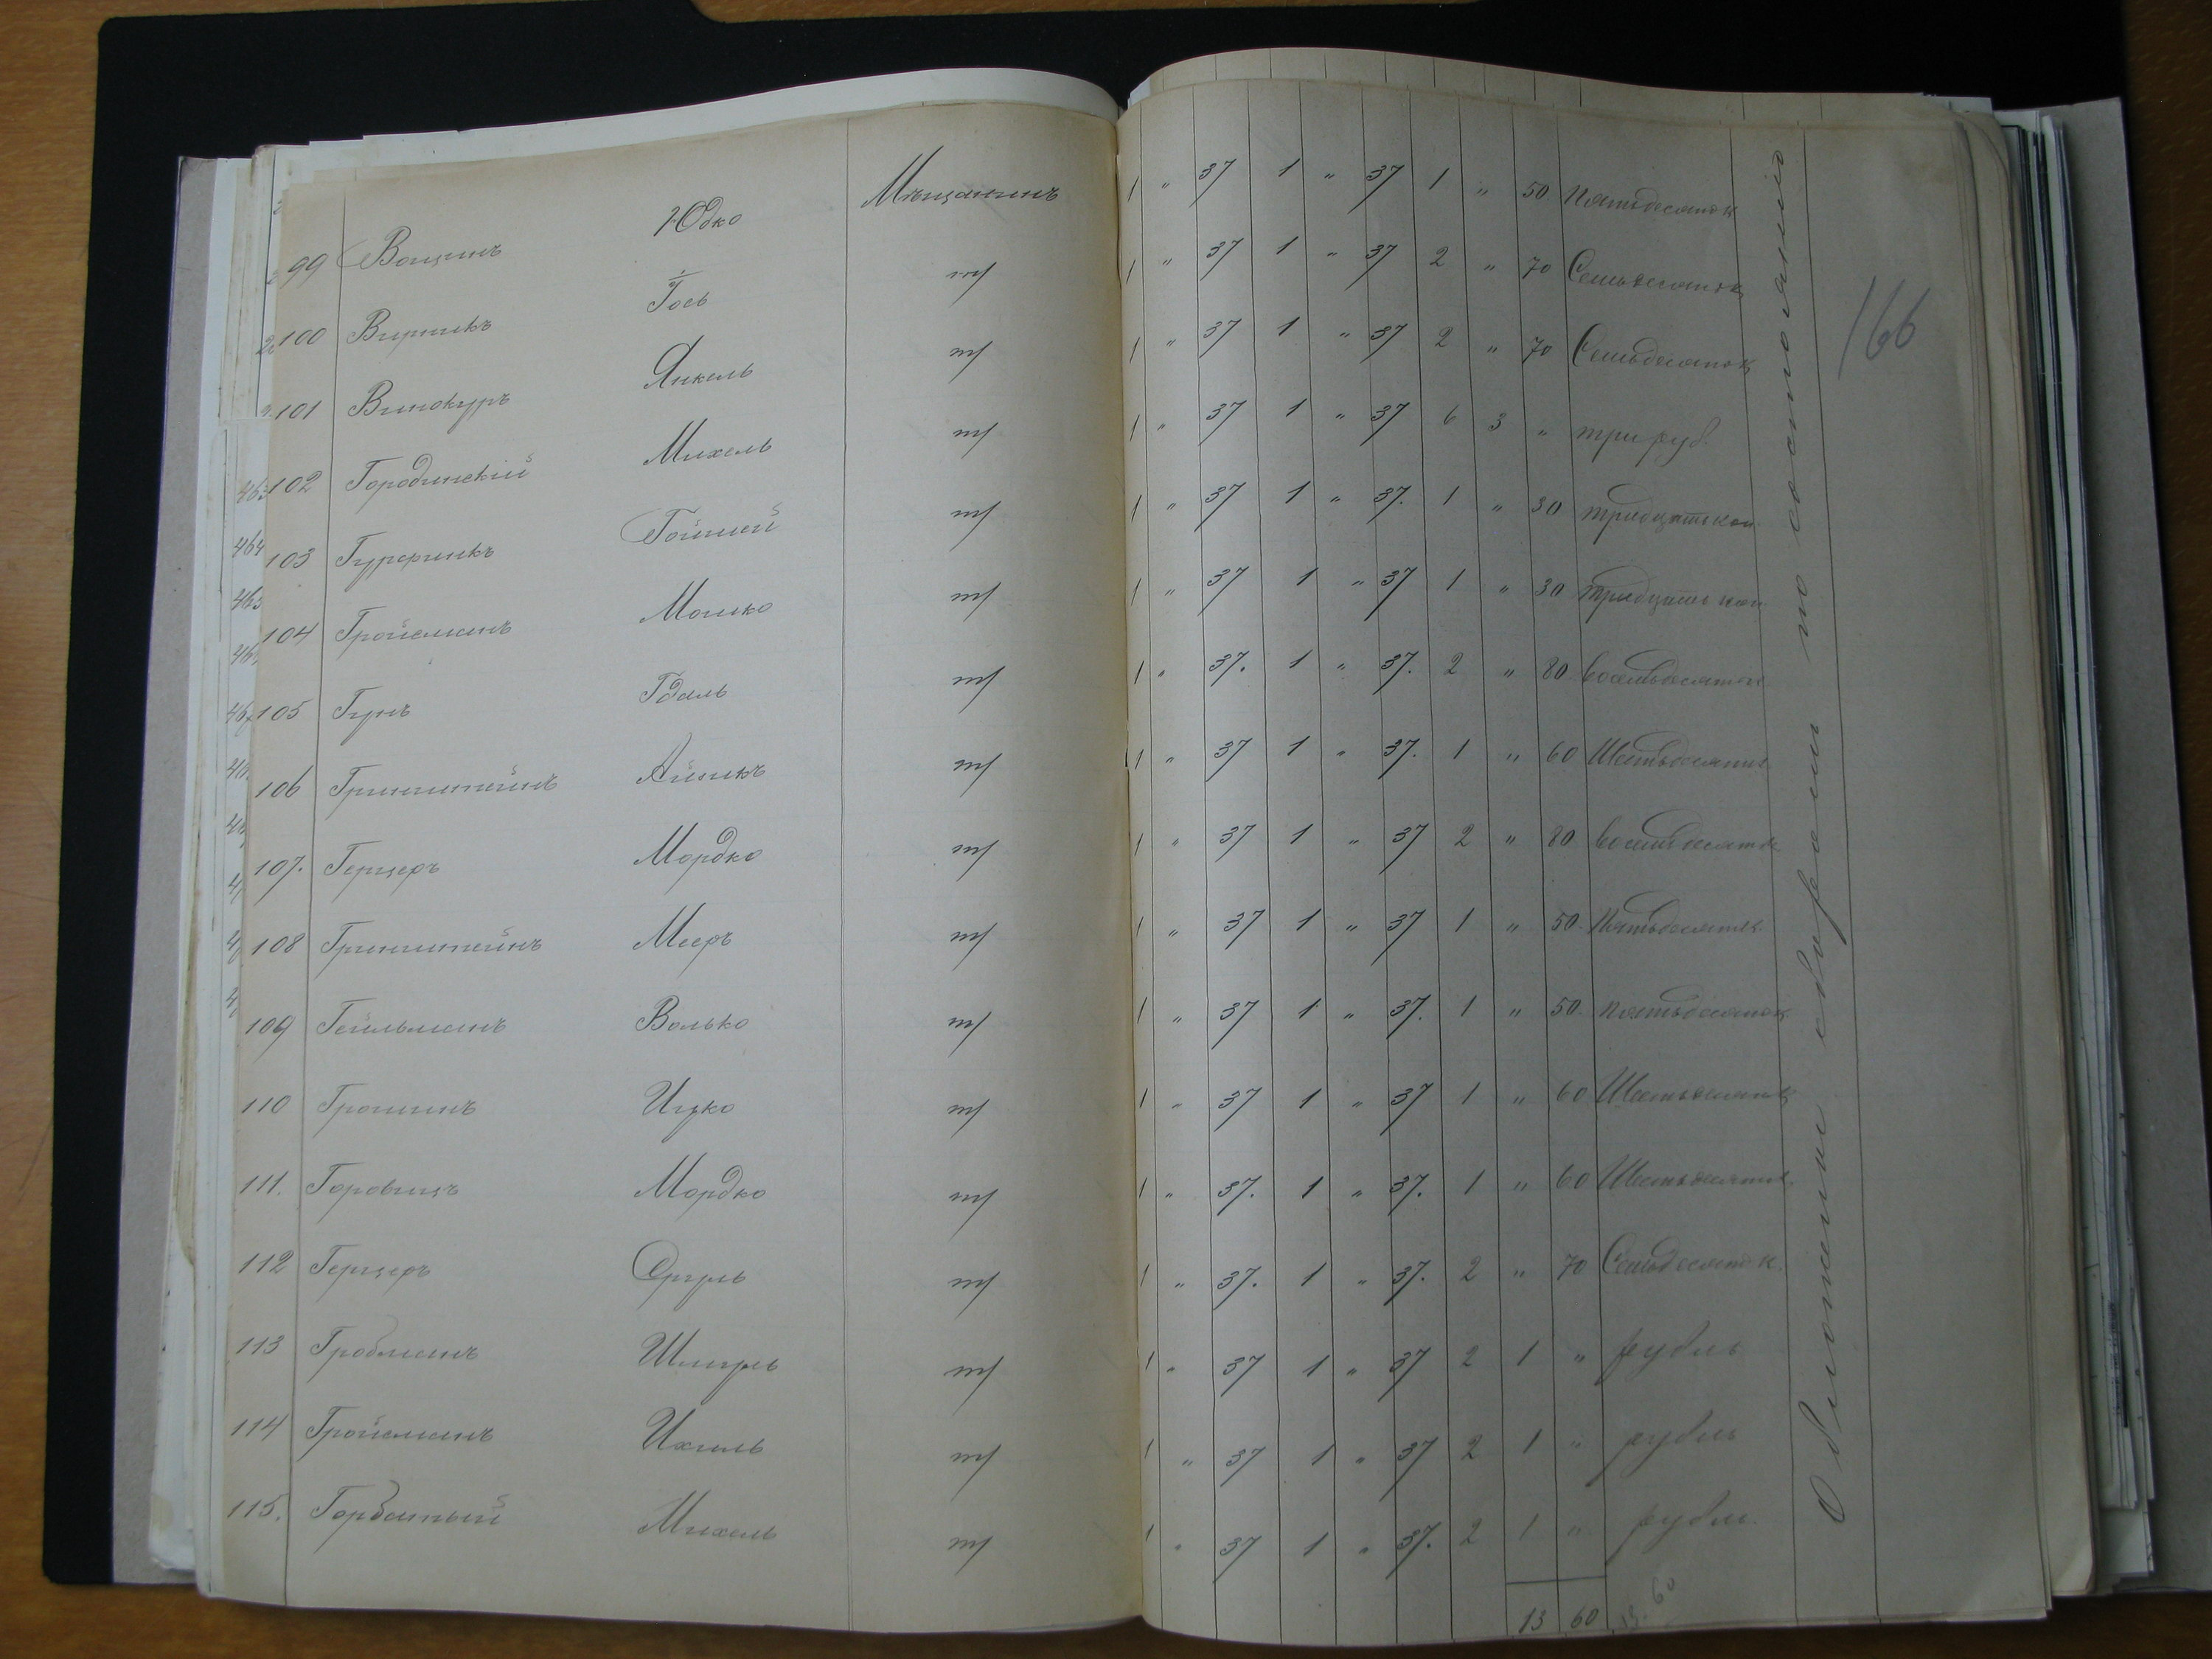 99 Вощинъ Юдко Мѣщанинъ 1 " 37 1 " 37 1 " 50 Пятьдесят к
100 Вирникъ Іось т/ 1 " 37 1 " 37 2 " 70 Семьдесят к
101 Винокуръ Янкель т/ 1 " 37 1 " 37 2 " 70 Семьдесят к
102 Городинскій Михель т/ 1 " 37 1 " 37 6 3 " три руб.
103 Гурфинкъ т/ 1 " 37 1 " 37. 1 " 30 тридцать коп
104 Гройсманъ Мошко т/ 1 " 37 1 " 37 1 " 30 тридцать коп
105 Гунъ Гдаль т/ 1 " 37. 1 " 37. 2 " 80 восемьдесят к
106 Гринштейнъ Айзикъ т/ 1 " 37 1 " 37. 1 " 60 Шестьдесят к
107. Герцеръ Мордко т/ 1 " 37 1 " 37 2 " 80 восемьдесят к
108 Гринштейнъ Мееръ т/ 1 " 37 1 " 37 1 " 50. Пятьдесят к.
109 Гейльманъ Волько т/ 1 " 37 1 " 37. 1 " 50. пятьдесят к
110 Грошинъ Ицко т/ 1 " 37 1 " 37 1 " 60 Шестьдесят к
111. Горовицъ Мордко т/ 1 " 37. 1 " 37. 1 " 60 Шестьдесят к.
112 Герцеръ Сруль т/ 1 " 37. 1 " 37. 2 " 70 Семьдесят к.
113 Гробманъ Шмуль т/ 1 " 37 1 " 37 2 1 " рубль
114 Гройсманъ Ихиль т/ 1 " 37 1 " 37 2 1 " рубль
115. Горбатый Михель т/ 1 " 37 1 " 37. 2 1 " рубль.
13 60
13. 60
Обложение собрали по состоянию
166